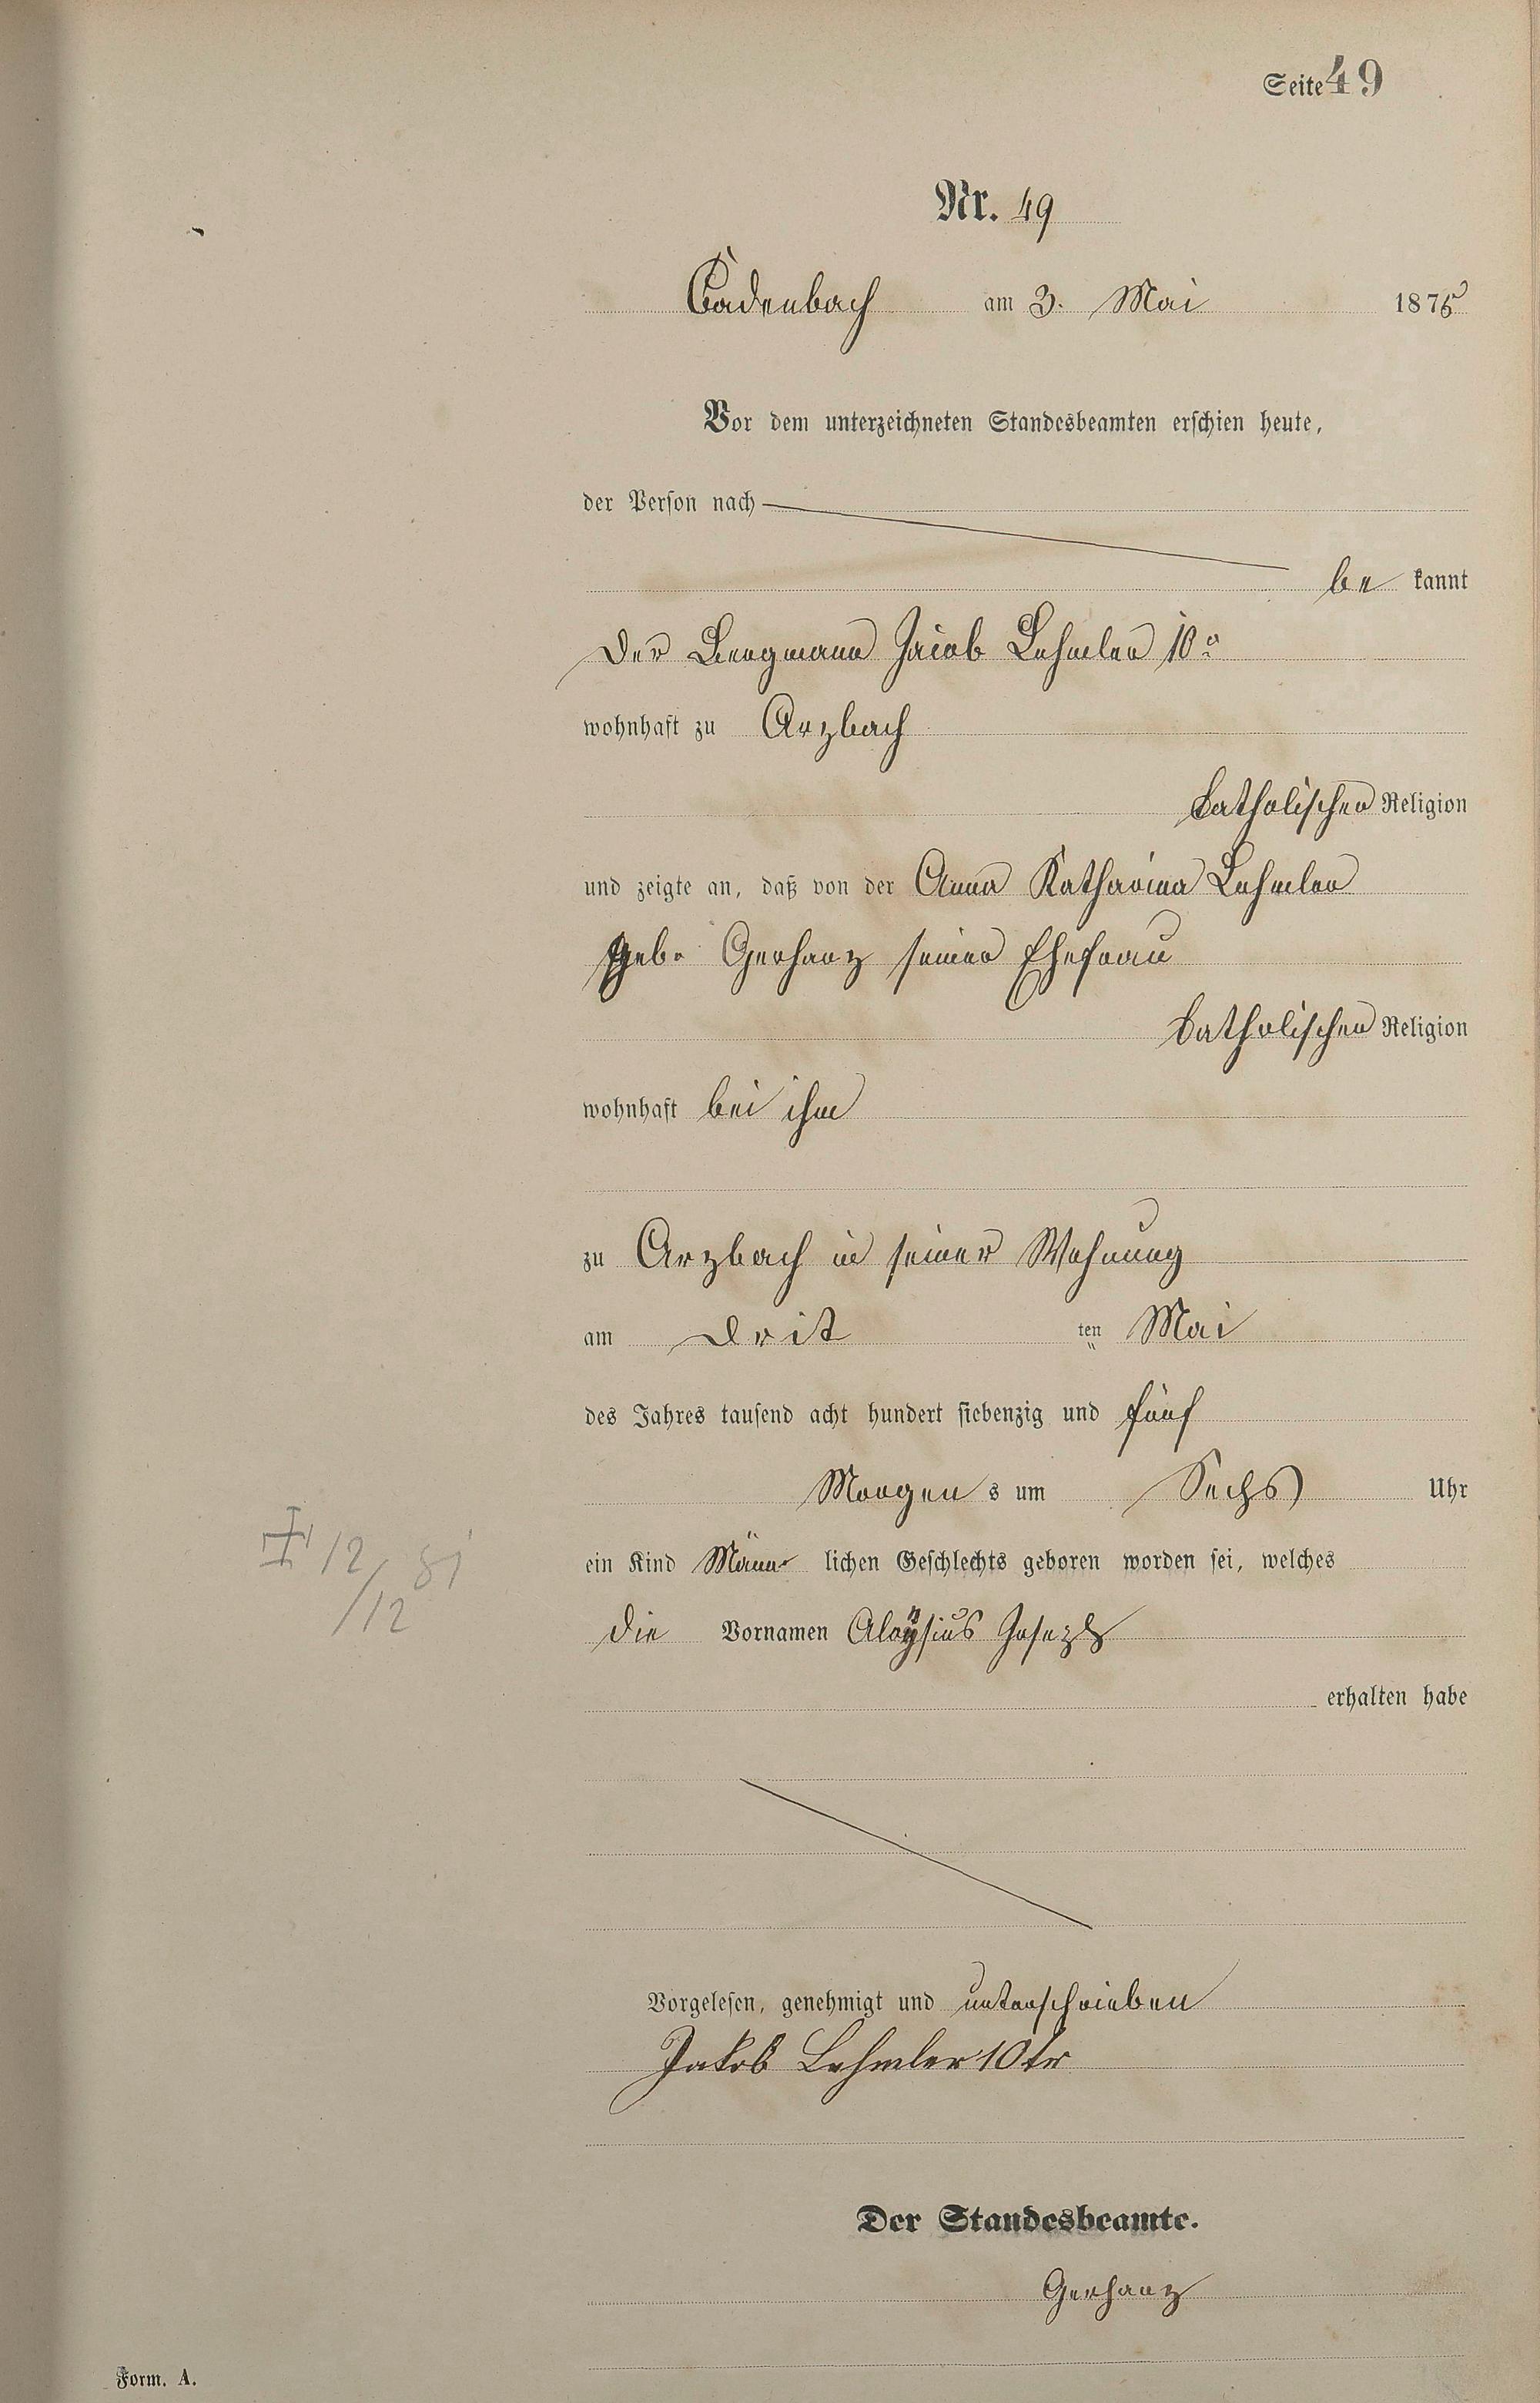 Seite 49
Nr. 49
Cadenbach am 3. Mai 1875
Vor dem unterzeichneten Standesbeamten erschien heute,
der Person nach
be kannt
der Bergmann Jacob Lehmler 10r
wohnhaft zu Arzbach
katholischer Religion
und zeigte an, daß von der Anna Katharina Lehmler
geb. Gerharz seiner Ehefrau
katholischer Religion
wohnhaft bei ihm
zu Arzbach in seiner Wohnung
am drit ten Mai
des Jahres tausend acht hundert siebenzig und fünf
Morgen s um Sechs Uhr
ein Kind Männ lichen Geschlechts geboren worden sei, welches
die Vornamen Aloÿsius Joseph
erhalten habe
Vorgelesen, genehmigt und unterschrieben
Jakob Lehmler 10ter
Der Standesbeamte.
Gerharz
Form. A.